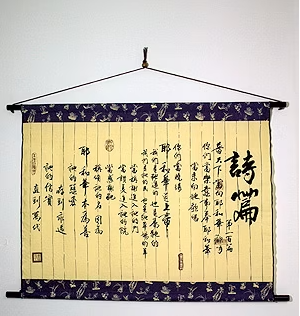 詩篇
第一百篇
普天下當向耶和華歡呼
你們當樂意事奉耶和華
當來向祂歌唱
你們當曉得
耶和華是上帝
我們是祂造的也是屬祂的
我們是祂的民也是祂草場的羊
當稱謝進入祂的門
當讚美進入祂的院
當感謝祂
稱頌祂的名 因為
耶和華本為善
祂的慈愛
存到永遠
祂的信實
直到萬代